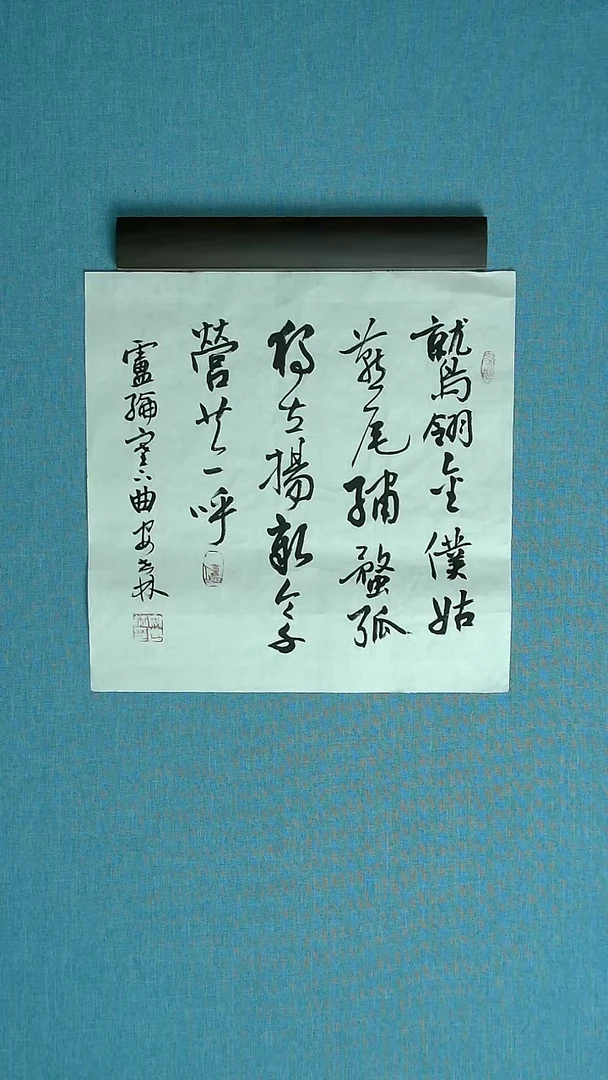 鷲翎金僕姑
燕尾繡蝥弧
獨立揚新令千
營共一呼
盧綸塞下曲